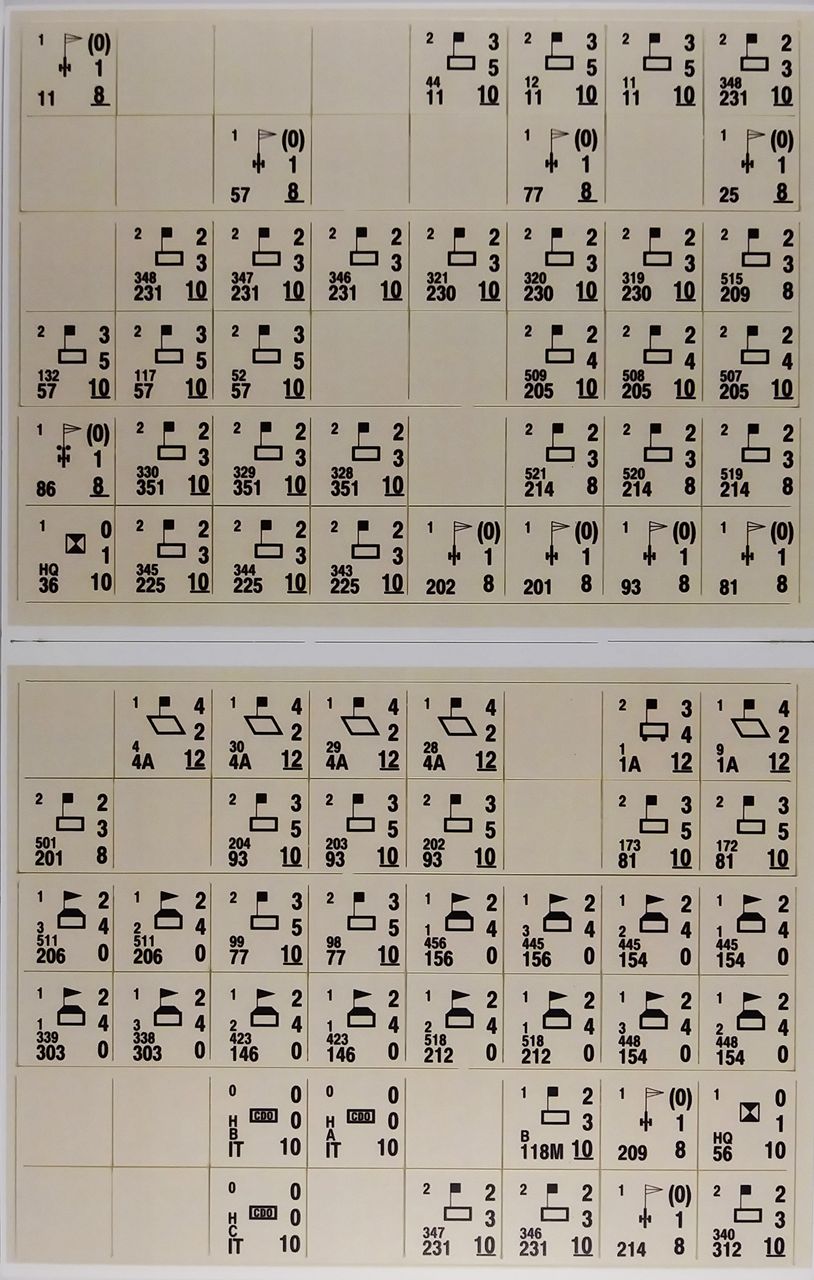 1 (0) 2 3 2 3 2 3 2 2
1 5 5 5 3
44 12 11 348
11 8 11 10 11 10 11 10 231 10
1 (0) 1 (0) 1 (0)
1 1 1
57 8 77 8 25 8
2 2 2 2 2 2 2 2 2 2 2 2 2 2
3 3 3 3 3 3 3
348 347 346 321 320 319 515
231 10 231 10 231 10 230 10 230 10 230 10 209 8
2 3 2 3 2 3 2 2 2 2 2 2
5 5 5 4 4 4
132 117 52 509 508 507
57 10 57 10 57 10 205 10 205 10 205 10
1 (0) 2 2 2 2 2 2 2 2 2 2 2 2
1 3 3 3 3 3 3
330 329 328 521 520 519
86 8 351 10 351 10 351 10 214 8 214 8 214 8
1 0 2 2 2 2 2 2 1 (0) 1 (0) 1 (0) 1 (0)
1 3 3 3 1 1 1 1
HQ 345 344 343
36 10 225 10 225 10 225 10 202 8 201 8 93 8 81 8
1 4 1 4 1 4 1 4 2 3 1 4
2 2 2 2 4 2
4 30 29 28 1 9
4A 12 4A 12 4A 12 4A 12 1A 12 1A 12
2 2 2 3 2 3 2 3 2 3 2 3
3 5 5 5 5 5
501 204 203 202 173 172
201 8 93 10 93 10 93 10 81 10 81 10
1 2 1 2 2 3 2 3 1 2 1 2 1 2 1 2
3 4 2 4 5 5 1 4 3 4 2 4 1 4
511 511 99 98 456 445 445 445
206 0 206 0 77 10 77 10 156 0 156 0 154 0 154 0
1 2 1 2 1 2 1 2 1 2 1 2 1 2 1 2
1 4 3 4 2 4 1 4 2 4 1 4 3 4 2 4
339 338 423 423 518 518 448 448
303 0 303 0 146 0 146 0 212 0 212 0 154 0 154 0
0 0 0 0 1 2 1 (0) 1 0
H CDO 0 H CDO 0 3 1 1
B A B HQ
IT 10 IT 10 118M 10 209 8 56 10
0 0 2 2 2 2 1 (0) 2 2
H CDO 0 3 3 1 3
C 347 346 340
IT 10 231 10 231 10 214 8 312 10